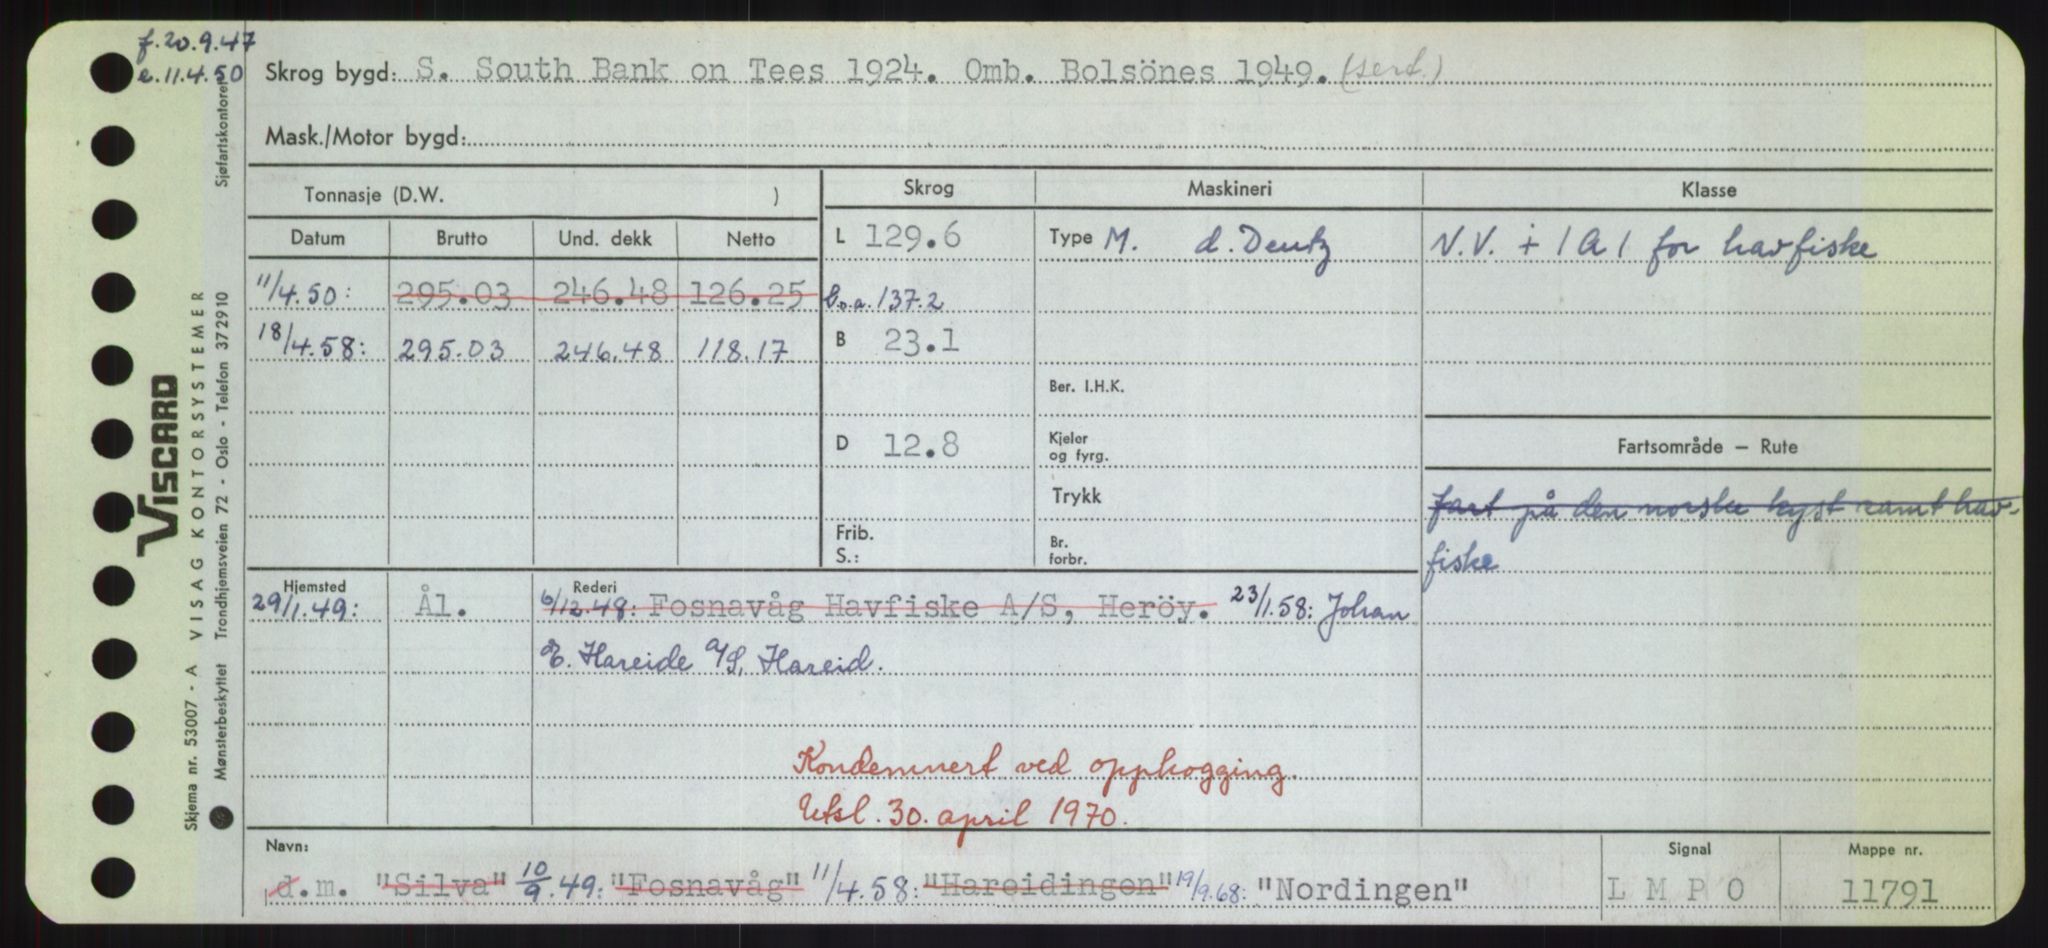 f. 20.9.47
e. 11.4.50
Skrog bygd: S. South Bank on Tees 1924. Omb. Bolsönes 1949. (sert.)
Mask./Motor bygd:
Tonnasje (D.W. )
Skrog
Maskineri
Klasse
Datum Brutto Und. dekk Netto
L 129.6
Type M. d. Deutz
N.V. + 1 A 1 for havfiske
11/4.50: 295.03 246.48 126.25
L.o.a. 137.2
18/4.58: 295.03 246.48 118.17
B 23.1
Ber. I.H.K.
D 12.8
Kjeler
og fyrg.
Fartsområde — Rute
Trykk
fart på den norske kyst samt hav-
fiske
Frib.
S.:
Br.
forbr.
Hjemsted
29/1.49: Ål.
Rederi
6/12.48: Fosnavåg Havfiske A/S, Heröy. 23/1.58: Johan
E. Hareide A/S, Hareid.
Kondemnert ved opphogging.
Utsl. 30. april 1970.
Navn:
d.m. "Silva" 10/9.49: "Fosnavåg" 11/4.58: "Hareidingen" 19/9.68: "Nordingen"
Signal
L M P O
Mappe nr.
11791
VISCARD
Skjema nr. 53007 - A VISAG KONTORSYSTEMER
Mønsterbeskyttet Trondhjemsveien 72 - Oslo - Telefon 372910 Sjøfartskontoret